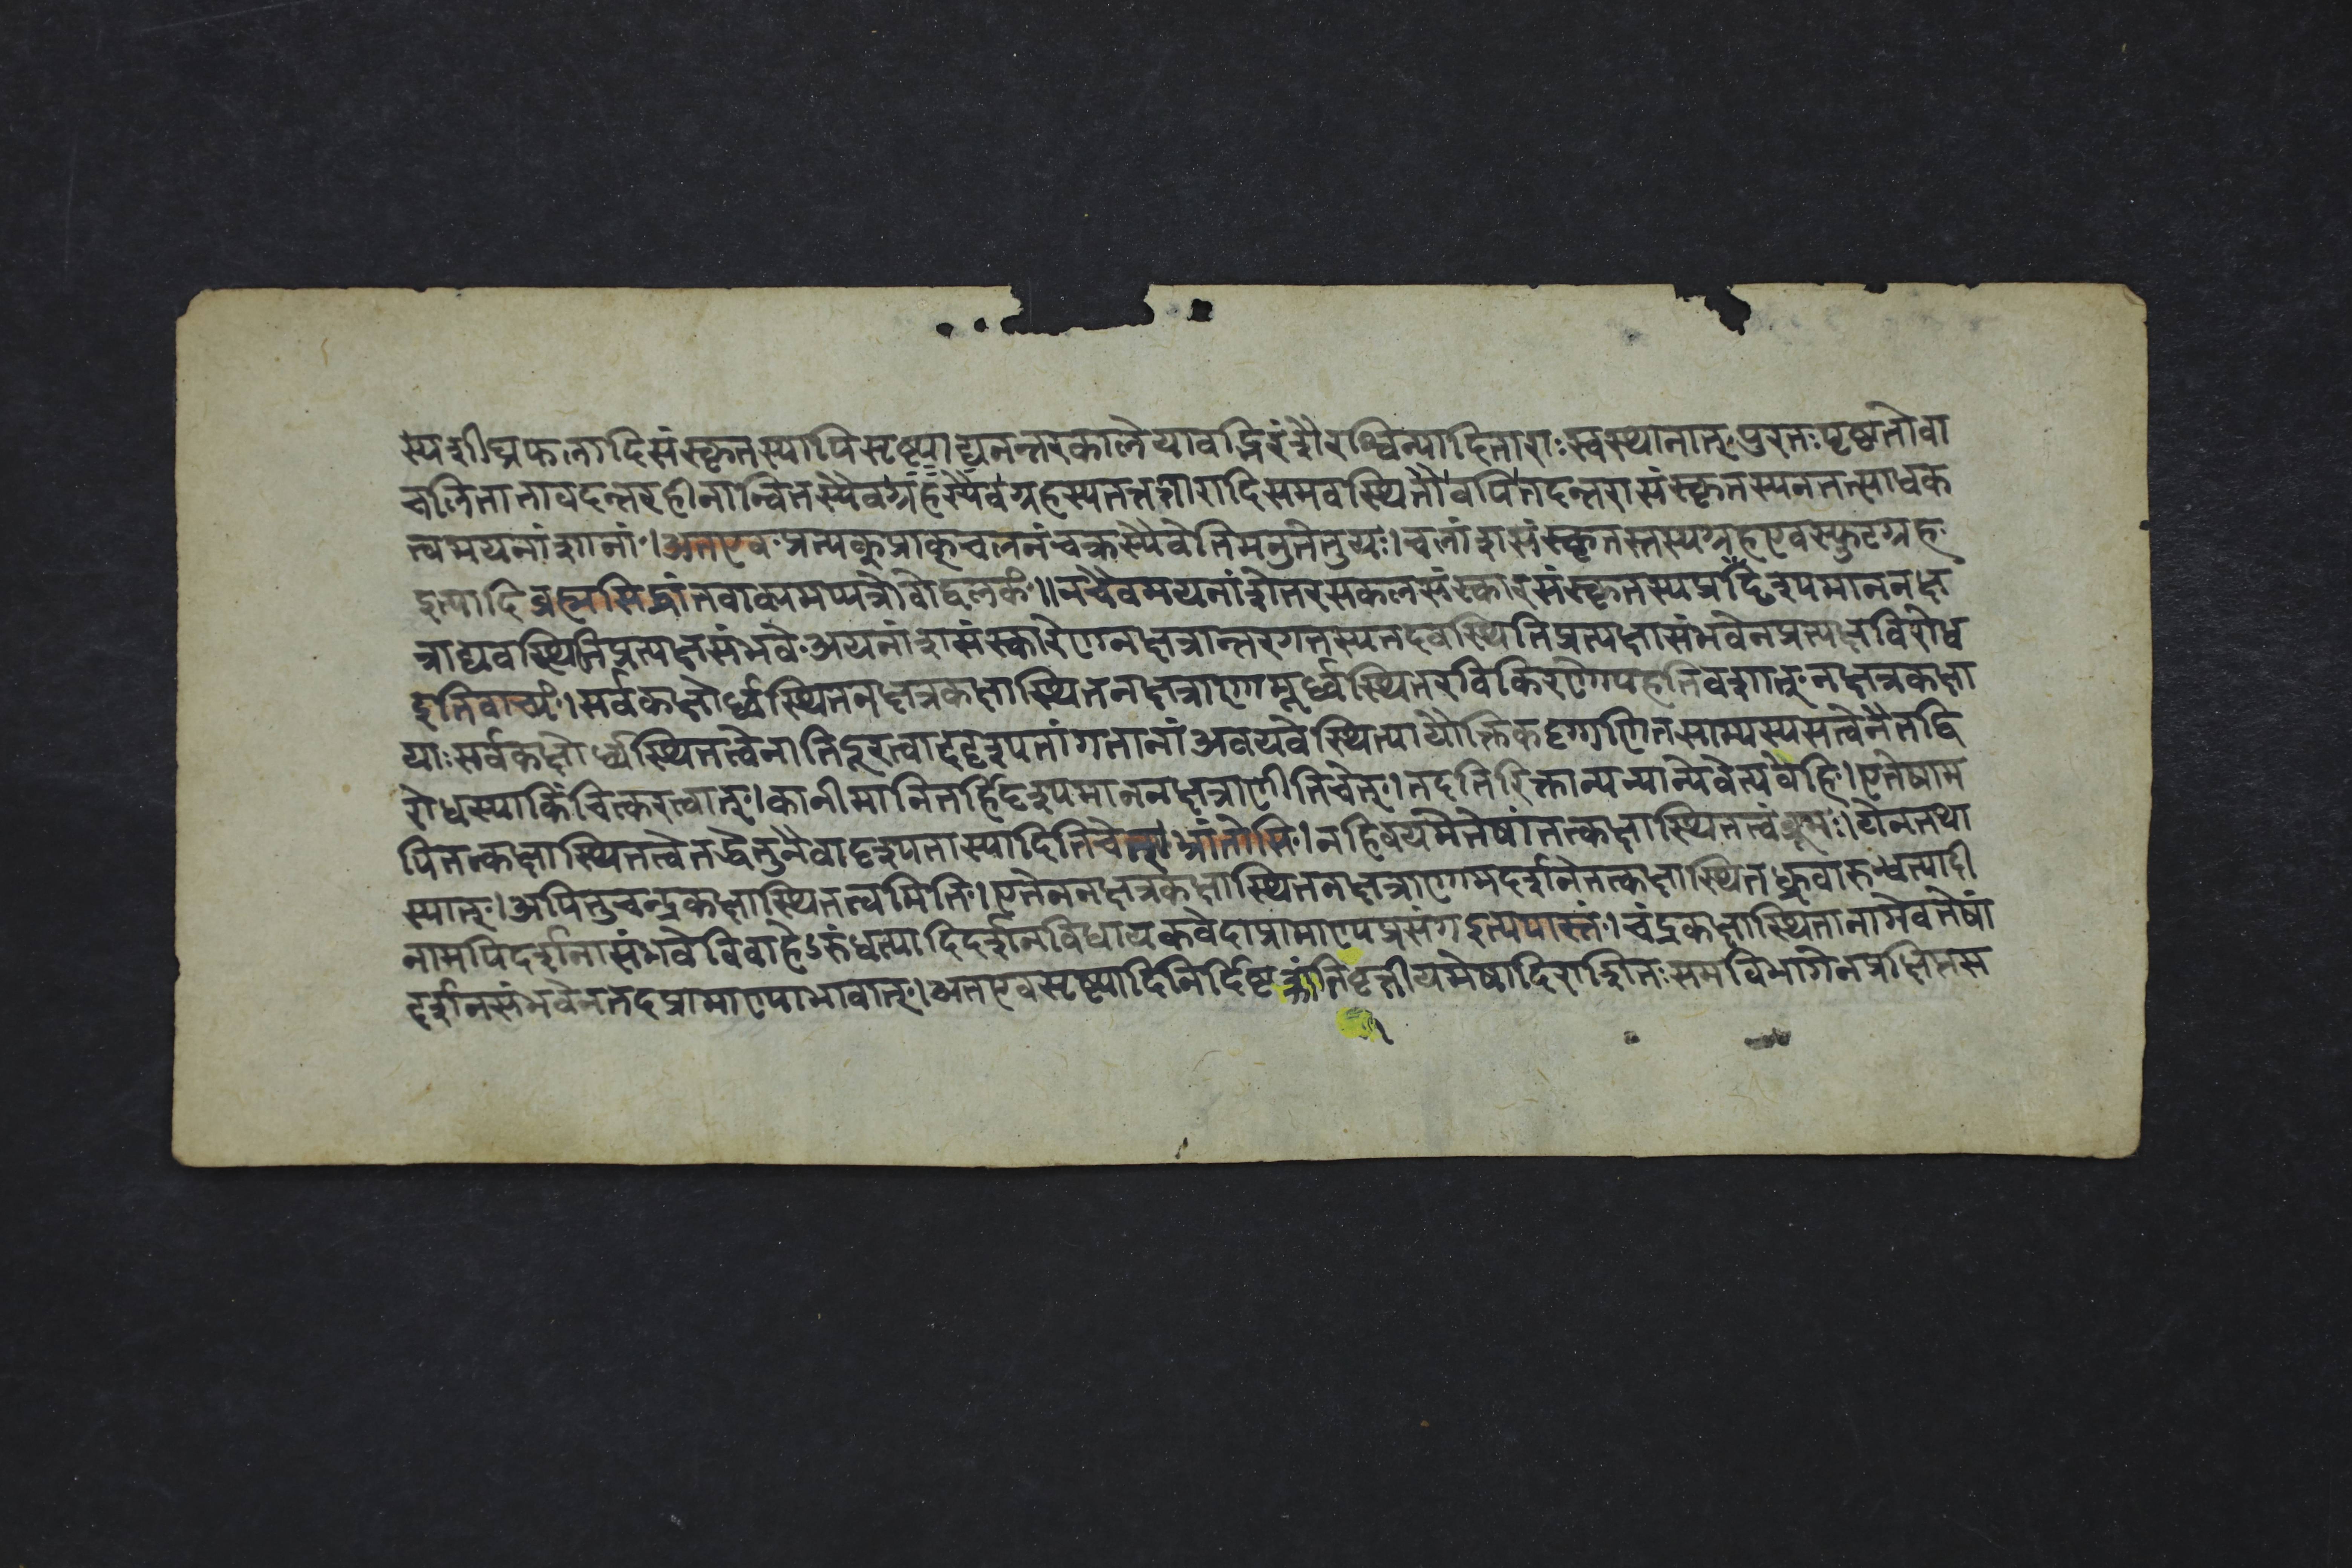 स्यशीघ्रफलादिसंस्कृतस्यापिसृष्ट्याद्यनन्तरकालेयावद्भिरंशैरश्विन्यादिताराःस्वस्थानात्पुरतःपृष्ठतोवा
चलितातावदन्तरहीनान्वितस्यैवग्रहस्यैवग्रहस्यतत्तत्तारादिसमवस्थितौवपितदन्तरासंस्कृतस्यनतत्साधक
त्वमयनांशानां।अतएवप्रत्यक्प्राक्चलनंचक्रस्यैवेतिमनुतेनुयः।चलांशसंस्कृतस्तस्यग्रहएवस्फुटग्रहः
इत्यादिब्रह्मसिद्धांतवाक्यमप्यत्रैवोद्बलकं॥नचैवमयनांशेतरसकलसंस्कारसंस्कृतस्यप्रदृश्यमाननक्ष
त्राद्यवस्थितिप्रत्यक्षसंभवेअयनांशसंस्कारेणनक्षत्रान्तरगतस्यतदवस्थितिप्रत्यक्षासंभवेनप्रत्यक्षविरोध
इतिवाच्यं।सर्वकक्षोर्ध्वस्थितनक्षत्रकक्षास्थितनक्षत्राणामूर्ध्वस्थितरविकिरणोपहतिवशात्नक्षत्रकक्षा
याःसर्वकक्षोर्ध्वस्थितत्वेनातिदूरत्वाददृश्यतांगतानांअवयवेस्थित्यायौक्तिकदृग्गणितसाम्यस्यसत्वेनैतद्वि
रोधस्याकिंचित्करत्वात्।कानीमानितर्हिदृश्यमाननक्षत्राणीतिचेत्।तदतिरिक्तान्यन्यान्येवेत्यवेहि।एतेषाम
पितत्कक्षास्थितत्वेतद्धेतुनैवादृश्यतास्यादितिचेत्।भ्रांतोसि।नहिवयमेतेषांतत्कक्षास्थितत्वंब्रूमः।येनतथा
स्यात्।अपितुचन्द्रकक्षास्थितत्वमिति।एतेननक्षत्रकक्षास्थितनक्षत्राणामदर्शनेतत्कक्षास्थितध्रुवारुन्धत्यादी
नामपिदर्शनासंभवेविवाहेऽरुंधत्यादिदर्शनविधायकवेदाप्रामाण्यप्रसंगइत्यपास्तं।चंद्रकक्षास्थितानामेवतेषां
दर्शनसंभवेनतदप्रामाण्याभावात्।अतएवसृष्ट्यादिनिर्दिष्टक्रांतिवृत्तीयमेषादिराशितःसमविभागेनप्रक्षिप्तस